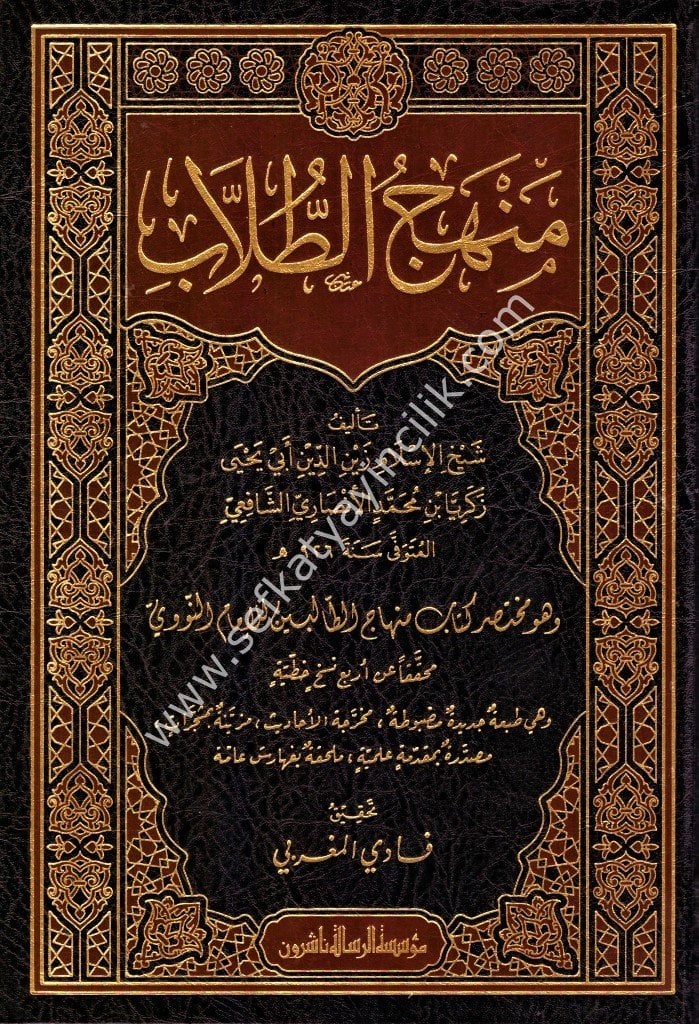 مَنْهَجُ الطُّلَّابِ
تَأليفُ
شَيْخِ الإِسْلَامِ زَيْنِ الدِّيْنِ أَبِيْ يَحْيَى
زَكَرِيَّا بْنِ مُحَمَّدٍ الأَنْصَارِيِّ الشَّافِعِيِّ
المُتَوَفَّى سَنَةَ ٩٢٦ هـ
وهو مختصر كتاب منهاج الطالبين للإمام النّوويّ
محقَّقاً عن أربع نسخ خطّيّةٍ
وهي طبعةٌ جديدةٌ مضبوطةٌ، مخرّجة الأحاديث، مزيّنةٌ
مصدّرةٌ بمقدّمةٍ علميّةٍ، ملحقةٌ بفهارسَ عامّة
تحقيقُ
فادي المغربي
مؤسسة الرسالة ناشرون
www.sefkatyayincilik.com